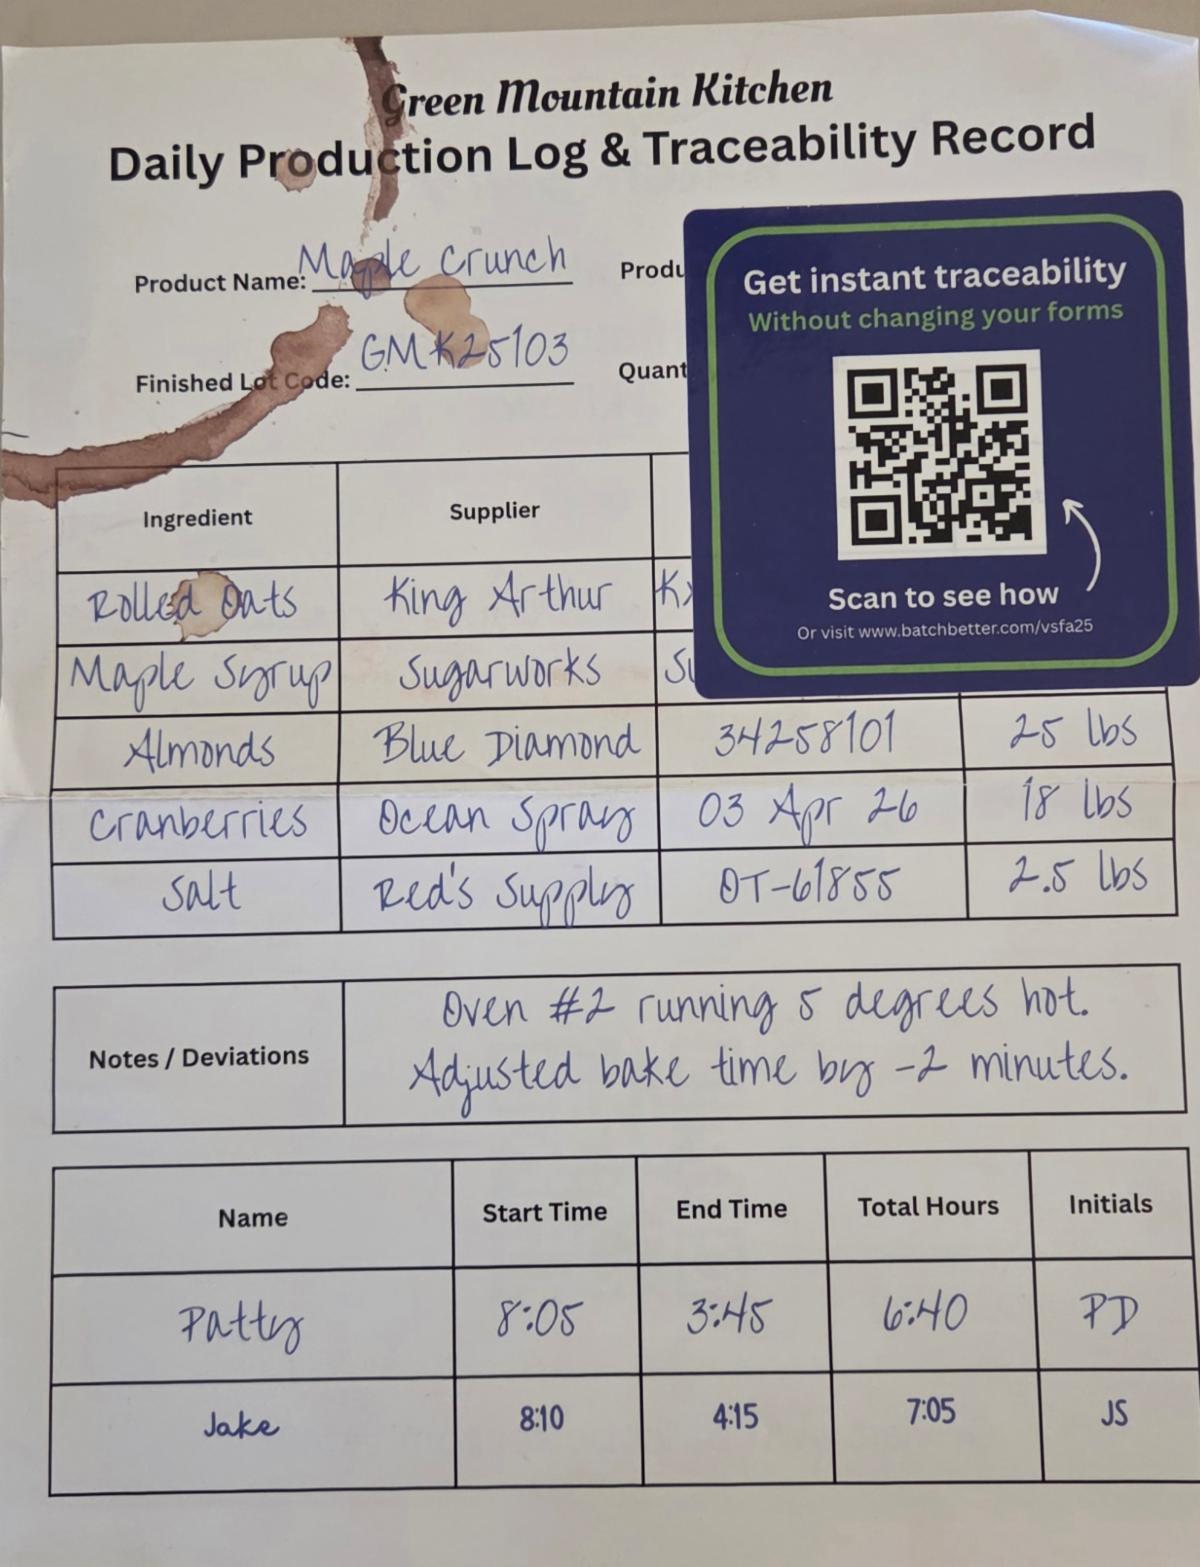 Green Mountain Kitchen
Daily Production Log & Traceability Record
Product Name: Maple Crunch
Finished Lot Code: GMK25103
Get instant traceability
Without changing your forms
Scan to see how
Or visit www.batchbetter.com/vsfa25
Ingredient Supplier
Rolled Oats King Arthur
Maple Syrup Sugarworks
Almonds Blue Diamond 34258101 25 lbs
Cranberries Ocean Spray 03 Apr 26 18 lbs
Salt Red's Supply OT-61855 2.5 lbs
Notes / Deviations
Oven #2 running 5 degrees hot.
Adjusted bake time by -2 minutes.
Name Start Time End Time Total Hours Initials
Patty 8:05 3:45 6:40 PD
Jake 8:10 4:15 7:05 JS